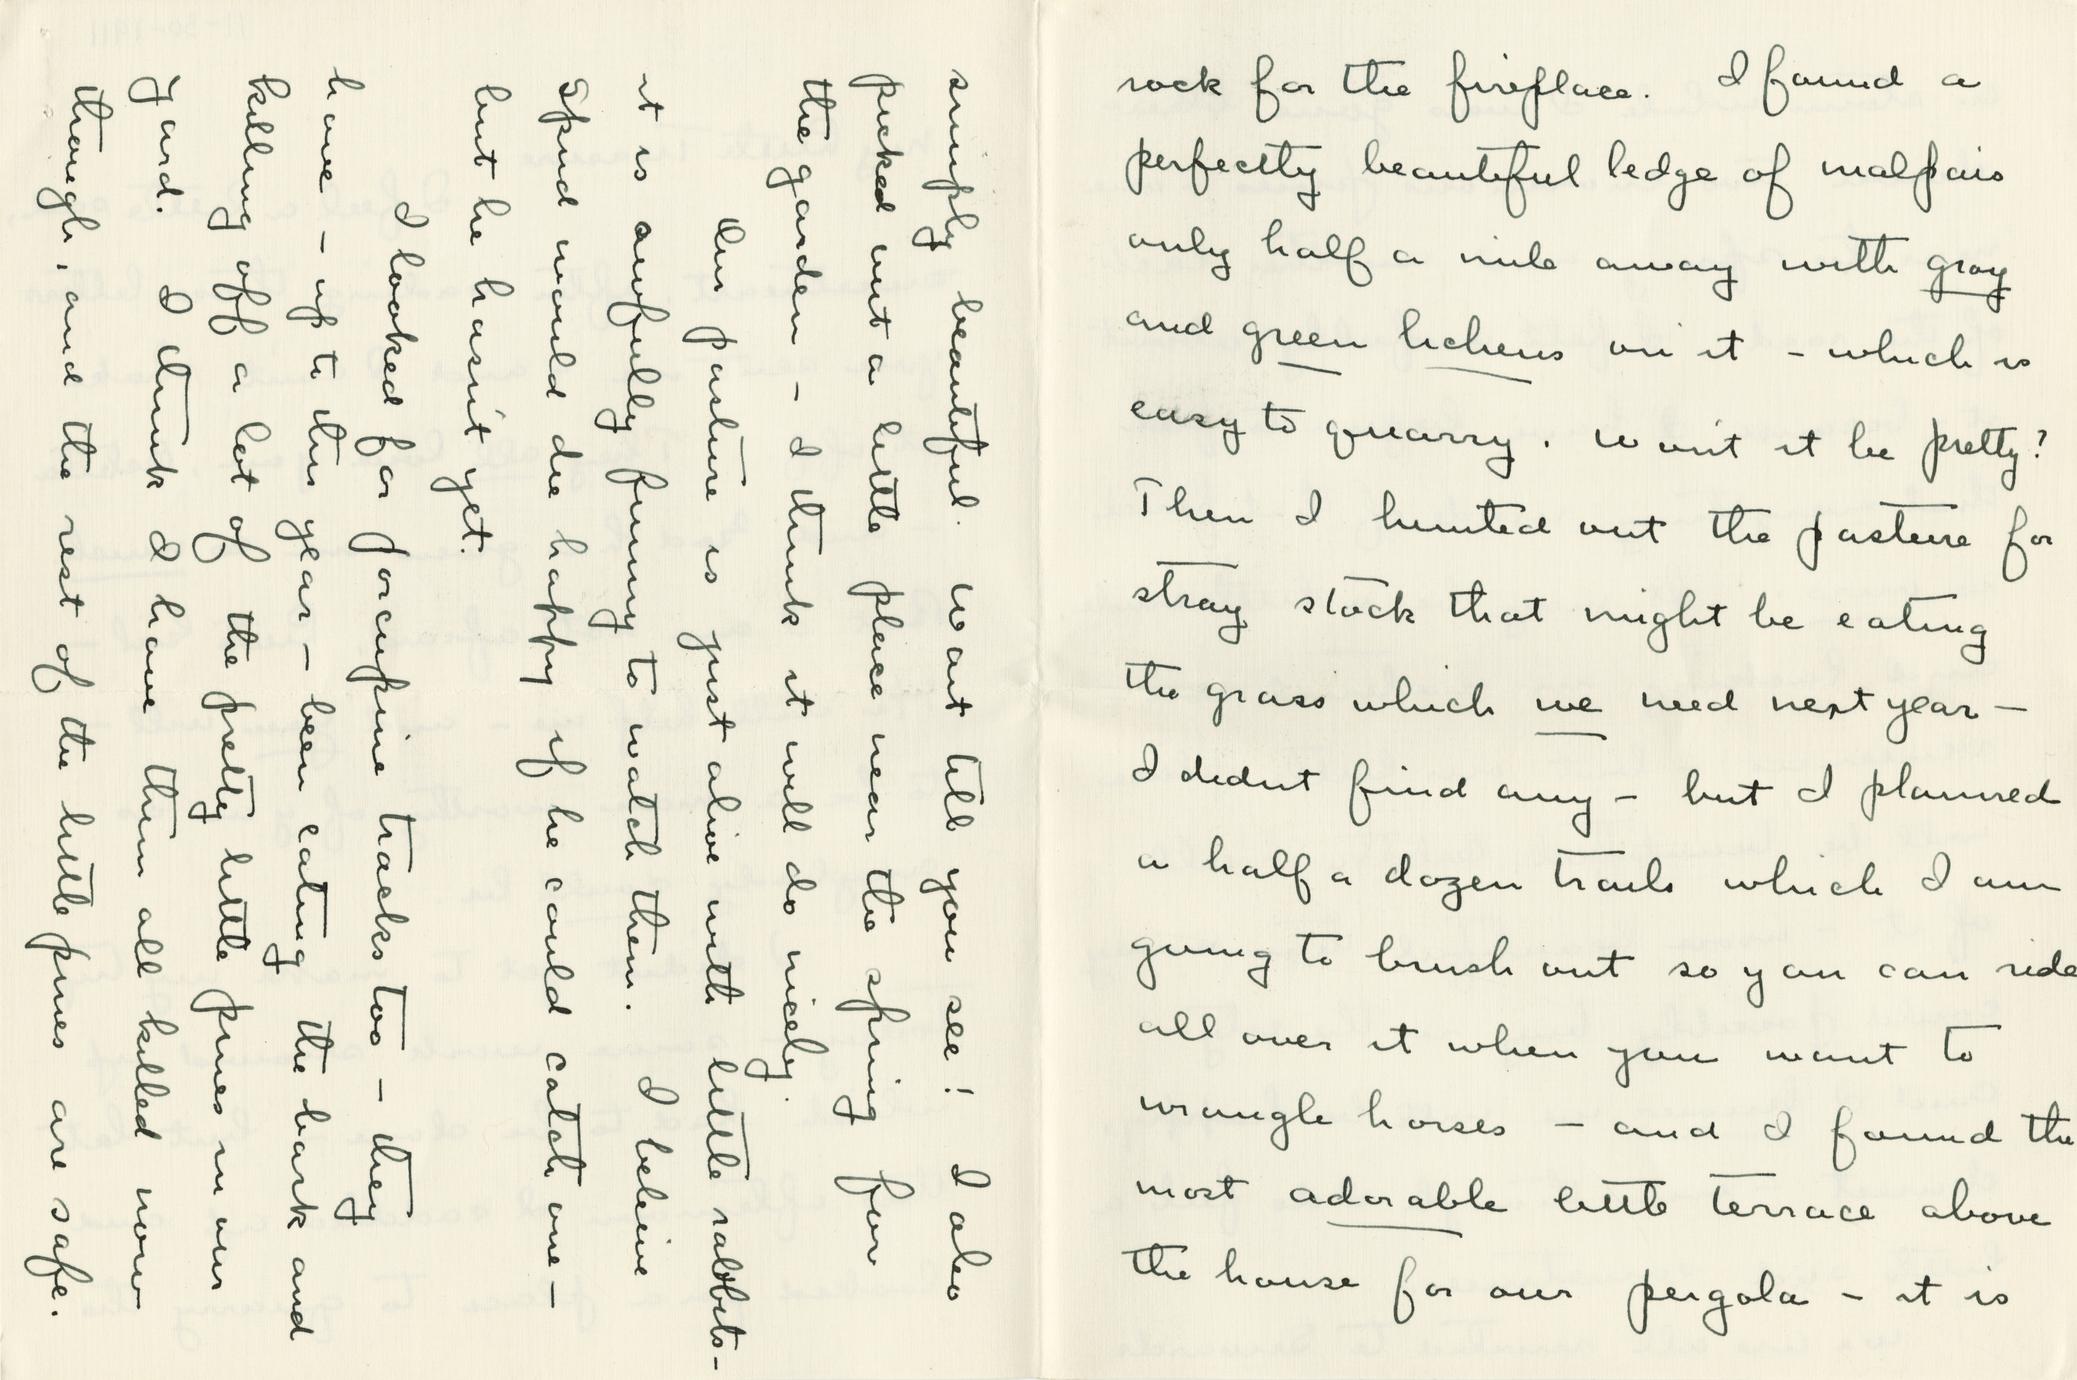 rock for the fireplace. I found a
perfectly beautiful ledge of malpais
only half a mile away with gray
and green lichens on it - which is
easy to quarry. Won't it be pretty?
Then I hunted out the pasture for
stray stock that might be eating
the grass which we need next year -
I didn't find any - but I planned
a half a dozen trails which I am
going to brush out so you can ride
all over it when you want to
wrangle horses - and I found the
most adorable little terrace above
the house for our pergola - it is
simply beautiful. Wait till you see! I also
picked out a little place near the spring for
the garden - I think it will do nicely.
Our pasture is just alive with little rabbits -
it is awfully funny to watch them. I believe
Spud would die happy if he could catch one -
but he hasn't yet.
I looked for porcupine tracks too - they
have - up to this year - been eating the bark and
killing off a lot of the pretty little pines in our
yard. I think I have them all killed now
though, and the rest of the little pines are safe.